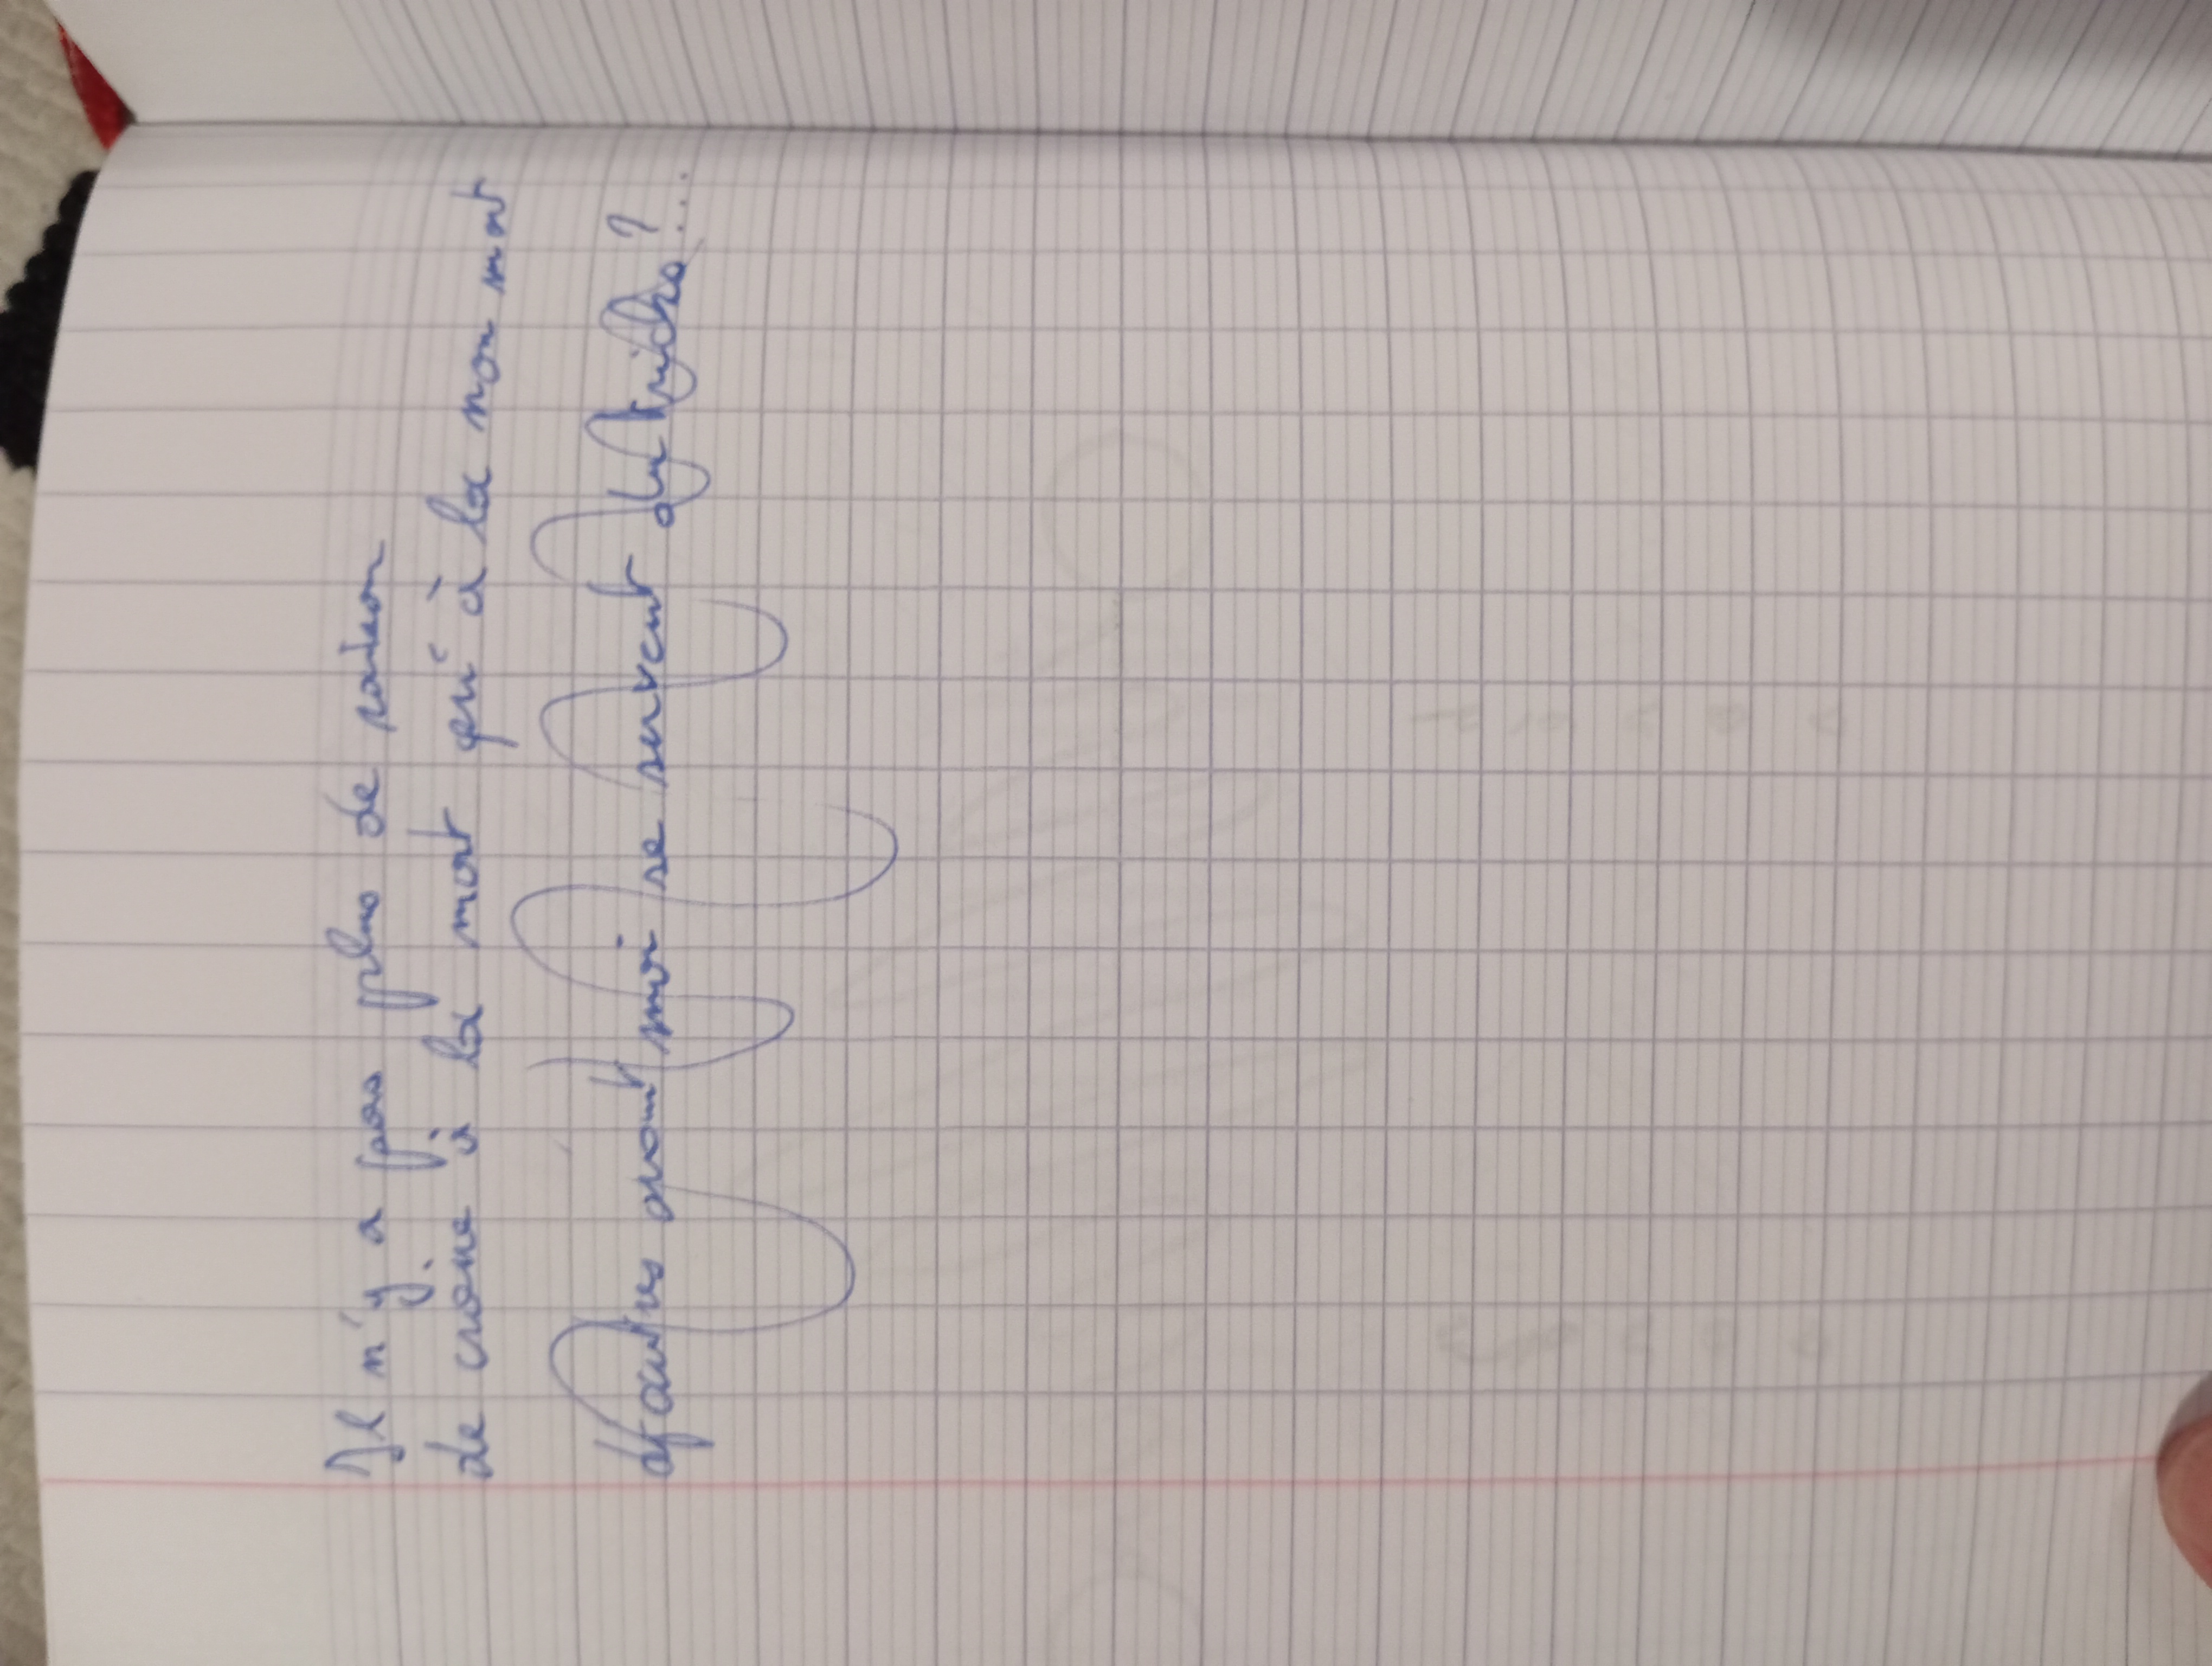 Il n'y a pas plus de raison
de croire à la mort qu'à la non mort
d'autres avant moi se servent du ?...